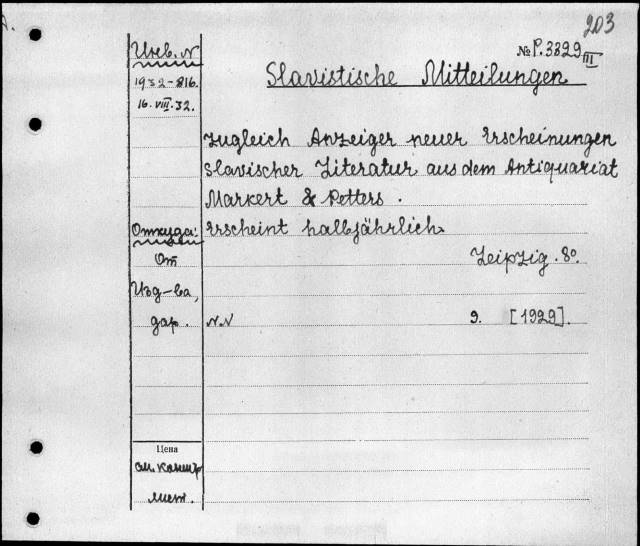 203
Инв. N
№ P. 3329 III
1932-816.
16. VIII. 32.
Slavistische Mitteilungen
zugleich Anzeiger neuer Erscheinungen
slavischer Literatur aus dem Antiquariat
Markert & Petters.
Откуда: Erscheint halbjährlich.
От
Leipzig. 8°.
Изд-ва,
дар. N.N 9. [1929].
Цена